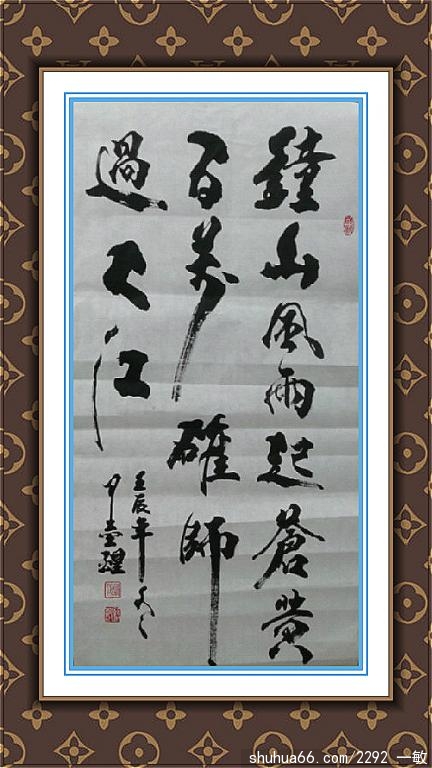 鐘山風雨起蒼黃
百萬雄師
過大江
壬辰年
shuhua66.com/2292 一敏